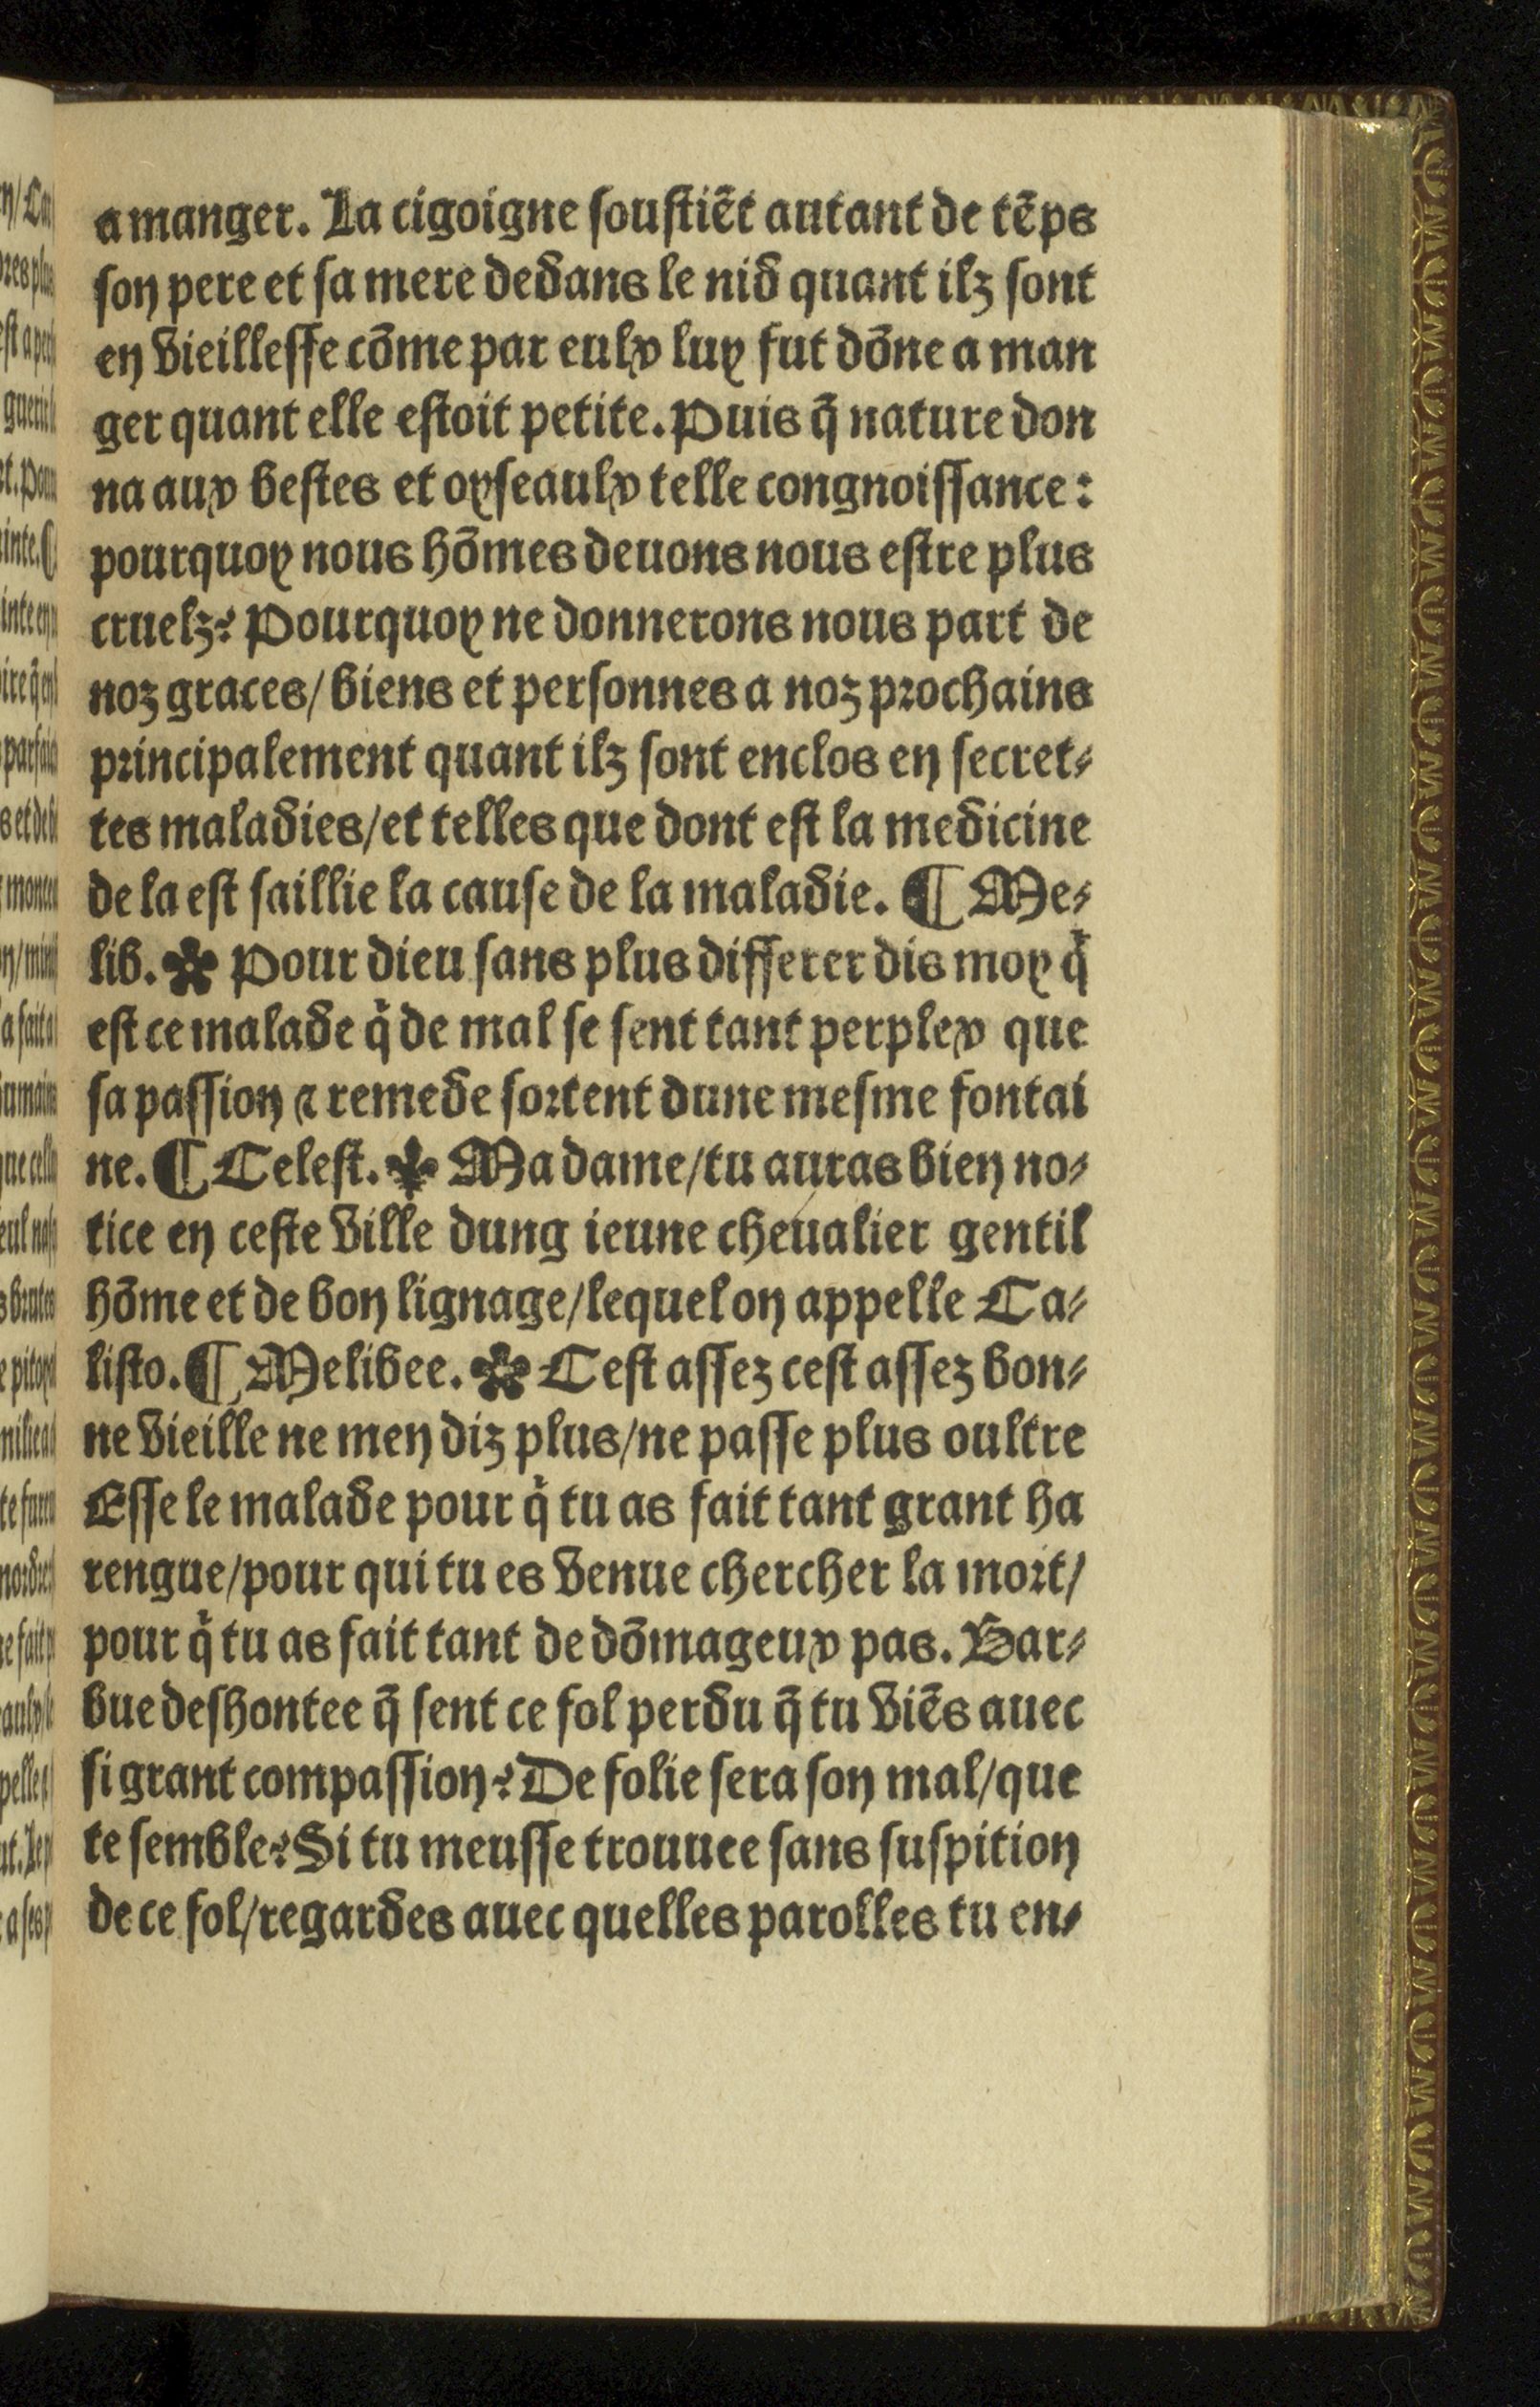 a manger. La cigoigne souſtiẽt autant de tẽps
son pere et ſa mere dedans le nid quant ilz ſont
en vieilleſſe cõme par eulx luy fut dõne a man
ger quant elle eſtoit petite. Puis q̃ nature don
na aux beſtes et oyſeaulx telle congnoiſſance:
pourquoy nous hõmes deuons nous eſtre plus
cruelz? Pourquoy ne donnerons nous part de
noz graces/ biens et perſonnes a noz prochains
principalement quant ilz ſont enclos en ſecret⸗
tes maladies/et telles que dont eſt la medicine
de la eſt ſaillie la cauſe de la maladie. ¶ Me⸗
lib. ✿ Pour dieu ſans plus differer dis moy qͥ
eſt ce malade qͥ de mal ſe ſent tant perplex que
ſa paſſion ⁊ remede ſortent dune meſme fontai
ne. ¶ Celeſt. ⚜ Ma dame/tu auras bien no⸗
tice en ceſte ville dung ieune cheualier gentil
hõme et de bon lignage/lequel on appelle Ca⸗
liſto. ¶ Melibee. ✿ Ceſt aſſez ceſt aſſez bon⸗
ne vieille ne men diz plus/ne paſſe plus oultre
Eſſe le malade pour qͥ tu as fait tant grant ha
rengue/pour qui tu es venue chercher la mort/
pour qͥ tu as fait tant de dõmageux pas. Bar⸗
bue deſhontee q̃ ſent ce fol perdu q̃ tu viẽs auec
ſi grant compaſſion? De folie ſera ſon mal/que
te ſemble? Si tu meuſſe trouuee ſans ſuſpition
de ce fol/regardes auec quelles parolles tu en⸗